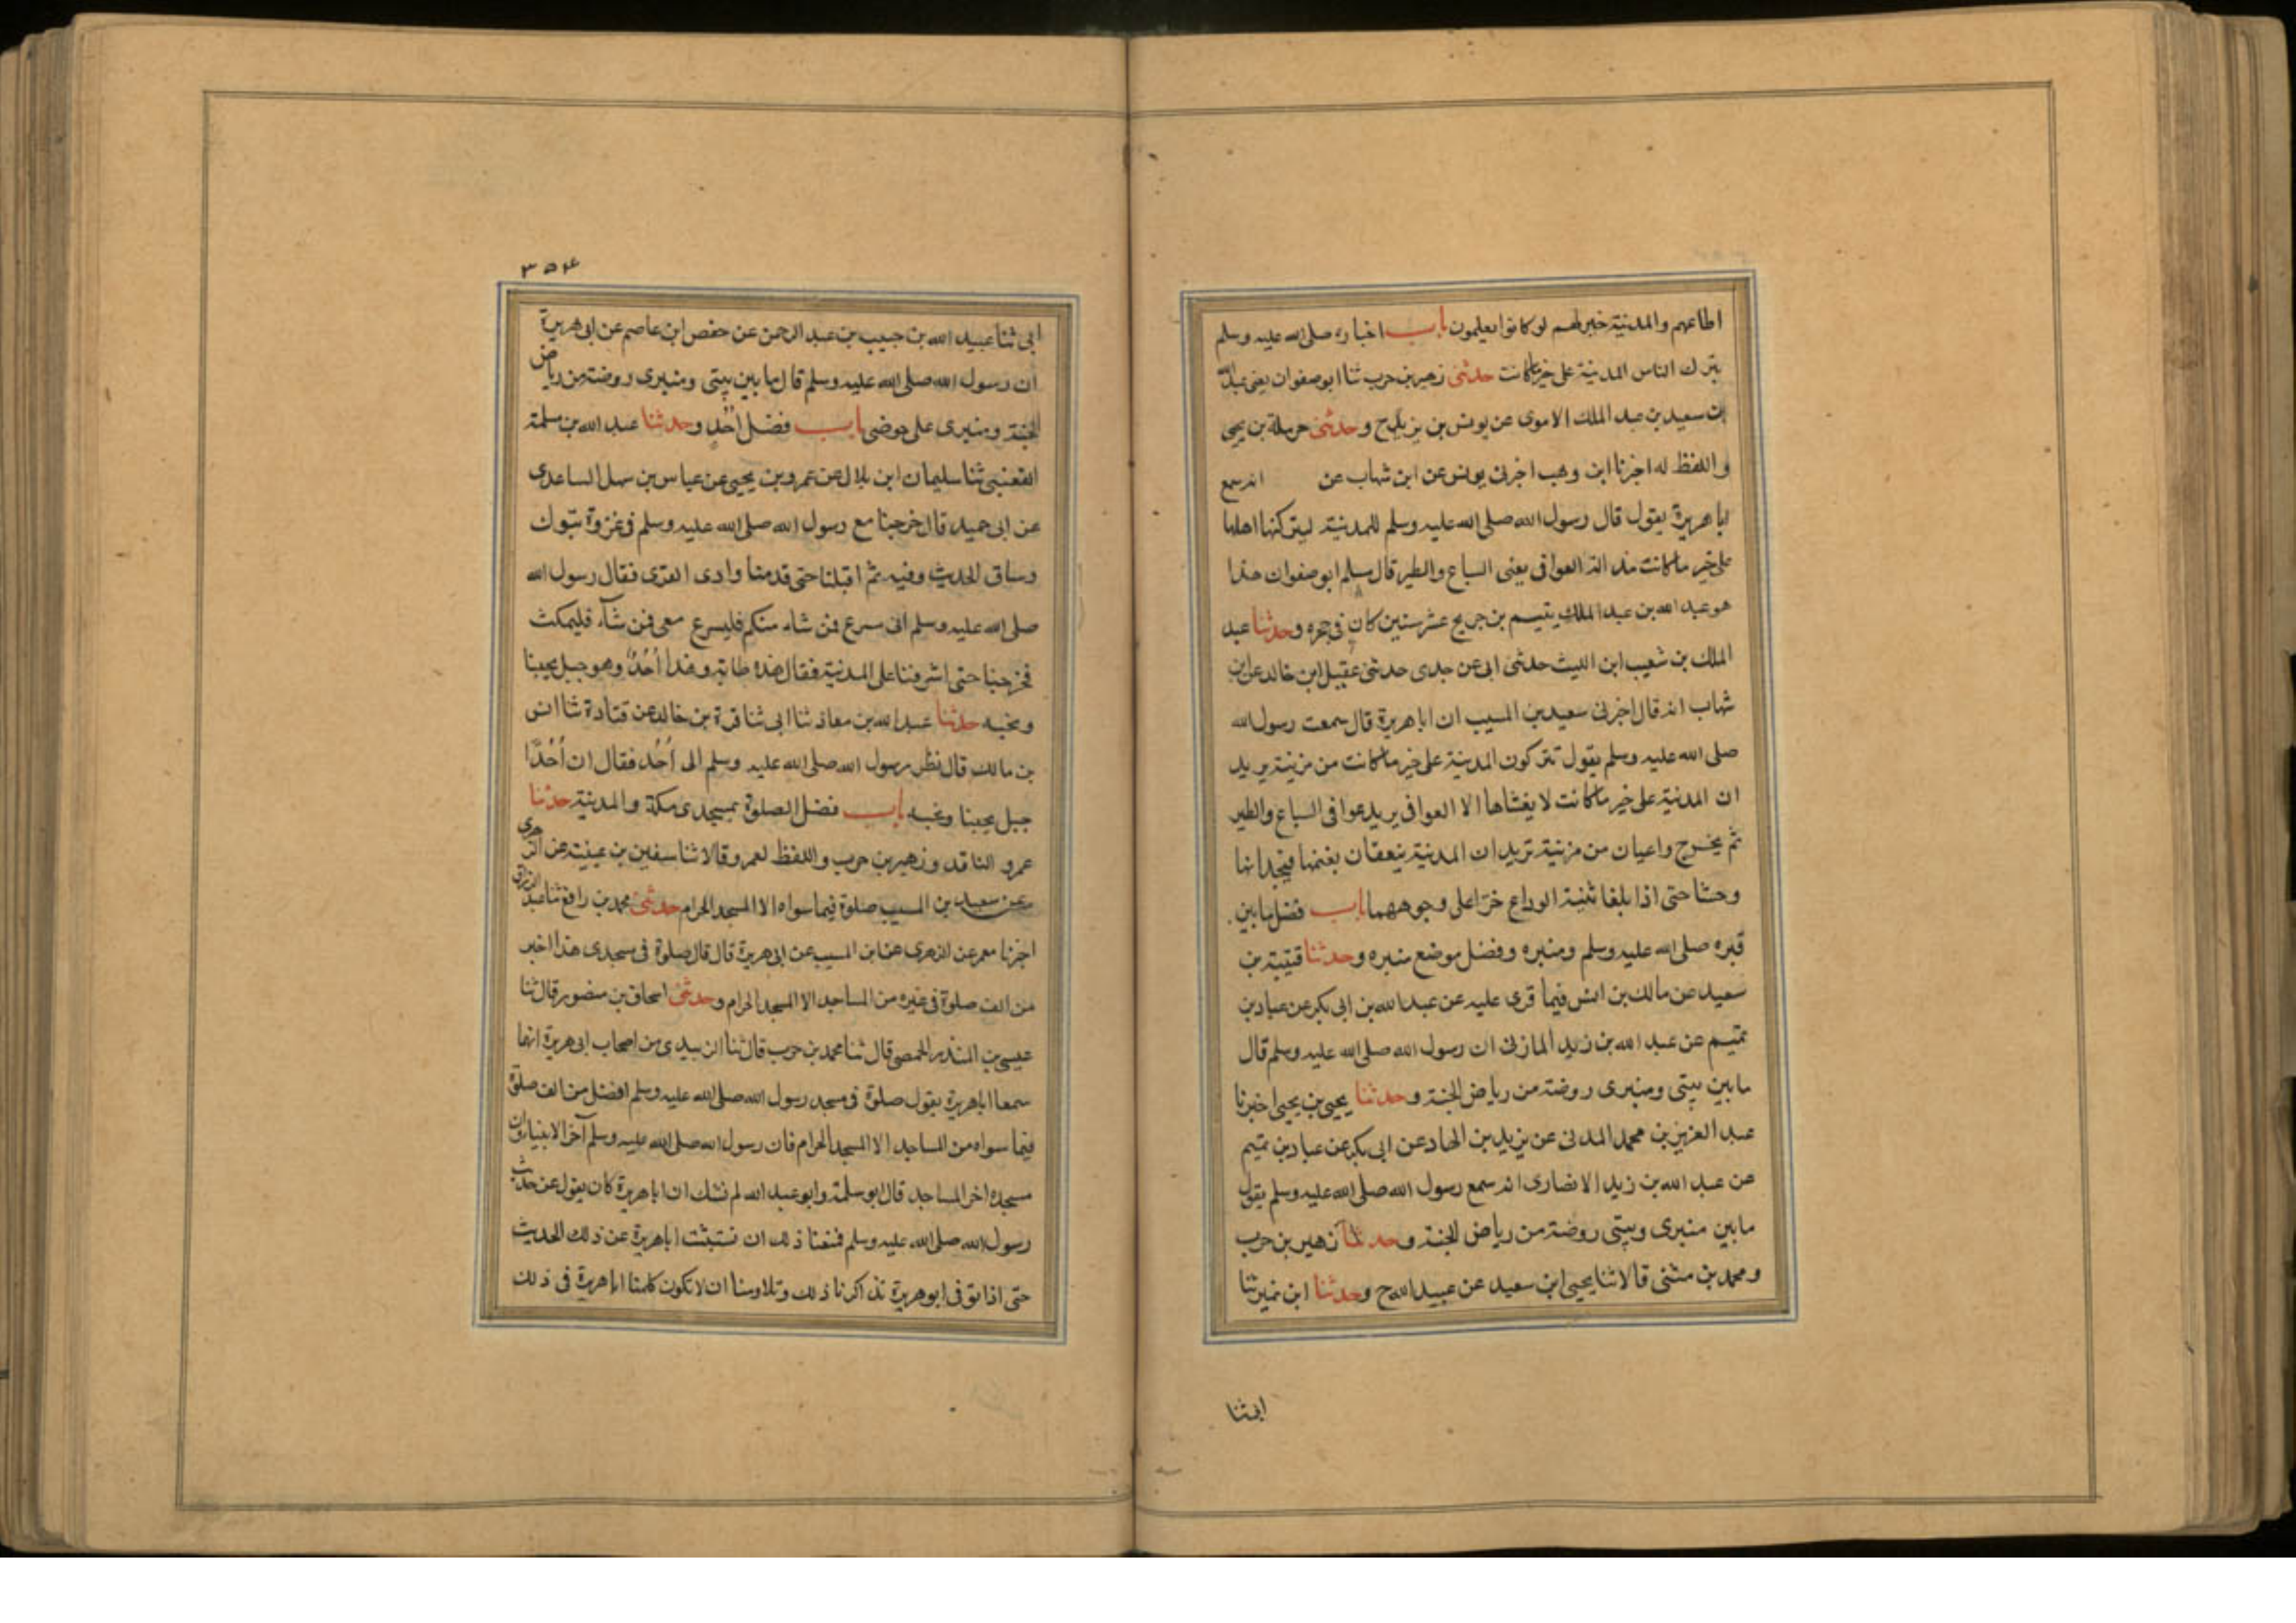 اطاعهم والمدينة خير لهم لو كانوا يعلمون باب اخباره صلى الله عليه وسلم
بترك الناس المدينة على خير ما كانت حدثنى زهير بن حرب ثنا ابو صفوان يعنى عبد الله
بن سعيد بن عبد الملك الاموى عن يونس بن يزيد ح وحدثنى حرملة بن يحيى
واللفظ له اخبرنا ابن وهب اخبرنى يونس عن ابن شهاب عن انه سمع
ابا هريرة يقول قال رسول الله صلى الله عليه وسلم للمدينة ليتركنها اهلها
على خير ما كانت العوافى يعنى السباع والطير قال مسلم ابو صفوان هذا
هو عبد الله بن عبد الملك يتيم بن جريج عشر سنين كان فى حجره وحدثنا عبد
الملك بن شعيب ابن الليث حدثنى ابى عن جدى حدثنى عقيل ابن خالد عن ابن
شهاب انه قال اخبرنى سعيد بن المسيب ان ابا هريرة قال سمعت رسول الله
صلى الله عليه وسلم يقول تتركون المدينة على خير ما كانت من مزينة يريد
ان المدينة على خير ما كانت لا يغشاها الا العوافى يريد عوافى السباع والطير
ثم يخرج راعيان من مزينة تريدان المدينة ينعقان بغنمها فيجدانها
وحشا حتى اذا بلغا ثنية الوداع خرا على وجوههما باب فضل ما بين
قبره صلى الله عليه وسلم ومنبره وفضل موضع منبره وحدثنا قتيبة بن
سعيد عن مالك بن انس فيما قرى عليه عن عبد الله بن ابى بكر عن عباد بن
تميم عن عبد الله بن زيد المازنى ان رسول الله صلى الله عليه وسلم قال
ما بين بيتى ومنبرى روضة من رياض الجنة وحدثنا يحيى بن يحيى اخبرنا
عبد العزيز بن محمد المدنى عن يزيد بن الهاد عن ابى بكر عن عباد بن تميم
عن عبد الله بن زيد الانصارى انه سمع رسول الله صلى الله عليه وسلم يقول
ما بين منبرى وبيتى روضة من رياض الجنة وحدثنا زهير بن حرب
ومحمد بن مثنى قالا ثنا يحيى ابن سعيد عن عبيد الله ح وحدثنا ابن نمير ثنا
ابى ثنا
٣٥٤
ابى ثنا عبيد الله بن حبيب بن عبد الرحمن عن حفص ابن عاصم عن ابى هريرة
ان رسول الله صلى الله عليه وسلم قال ما بين بيتى ومنبرى روضة من رياض
الجنة ومنبرى على حوضى باب فضل اُحُدٍ وحدثنا عبد الله بن مسلمة
القعنبى ثنا سليمان ابن بلال عن عمرو بن يحيى عن عباس بن سهل الساعدى
عن ابى حميد قال خرجنا مع رسول الله صلى الله عليه وسلم فى غزوة تبوك
وساق الحديث وفيه ثم اقبلنا حتى قدمنا وادى القرى فقال رسول الله
صلى الله عليه وسلم انى مسرع فمن شاء منكم فليسرع معى فمن شآء فليمكث
فخرجنا حتى اشرفنا على المدينة فقال هذه طابة وهذا اُحُدٌ وهو جبل يحبنا
ونحبه حدثنا عبد الله بن معاذ ثنا ابى ثنا قرة بن خالد عن قتادة ثنا انس
بن مالك قال نظر رسول الله صلى الله عليه وسلم الى اُحُد فقال ان اُحُدًا
جبل يحبنا ونحبه باب فضل الصلوة بمسجدى مكة والمدينة حدثنا
عمرو الناقد وزهير بن حرب واللفظ لعمرو قالا ثنا سفين بن عيينة عن الزهرى
عن سعيد بن المسيب صلوة فيما سواه الا المسجد الحرام حدثنى محمد بن رافع ثنا عبد الرزاق
اخبرنا معمر عن الزهرى عن ابن المسيب عن ابى هريرة قال قال صلوة فى مسجدى هذا اخير
من الف صلوة فى غيره من المساجد الا المسجد الحرام وحدثنى اسحاق بن منصور قال ثنا
عيسى بن المنذر الحمصى قال ثنا محمد بن حرب قال ثنا الزبيدى من اصحاب ابى هريرة انهما
سمعا اباهريرة يقول صلوة فى مسجد رسول الله صلى الله عليه وسلم افضل من الف صلوة
فيما سواه من المساجد الا المسجد الحرام فان رسول الله صلى الله عليه وسلم آخر الانبياء وان
مسجده اخر المساجد قال ابو سلمة وابو عبد الله لم نشك ان ابا هريرة كان يقول عن حديث
رسول الله صلى الله عليه وسلم فمنعنا ذلك ان نستبثت اباهريرة عن ذلك الحديث
حتى اذا توفى ابو هريرة تذاكرنا ذلك وتلاومنا ان لا نكون كلمنا اباهريرة فى ذلك